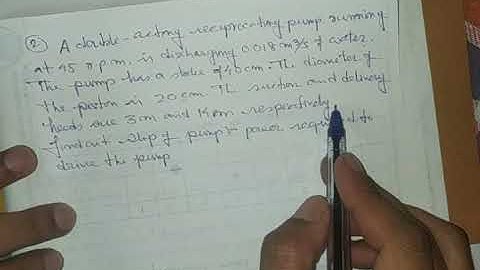 ② A double-acting reciprocating pump running
at 45 r.p.m. is discharging 0.018 m³/s of water.
The pump has a stoke of 40 cm. The diameter of
the piston is 20 cm. The suction and delivery
heads are 3 m and respectively
Find out slip of pump & power required to
drive the pump